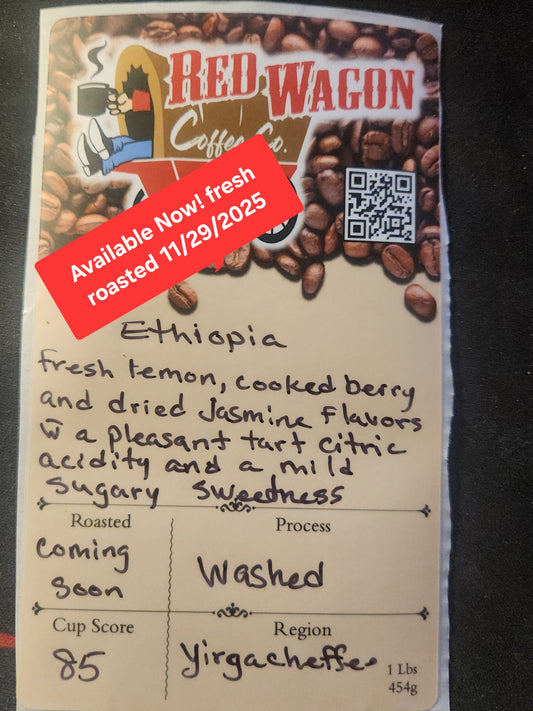 RED WAGON
Coffee Co.
Available Now! fresh
roasted 11/29/2025
Ethiopia
fresh lemon, cooked berry
and dried Jasmine flavors
w̄ a pleasant tart citric
acidity and a mild
sugary sweetness
Roasted
Process
Coming
Soon
Washed
Cup Score
Region
85
Yirgacheffe
1 Lbs
454g